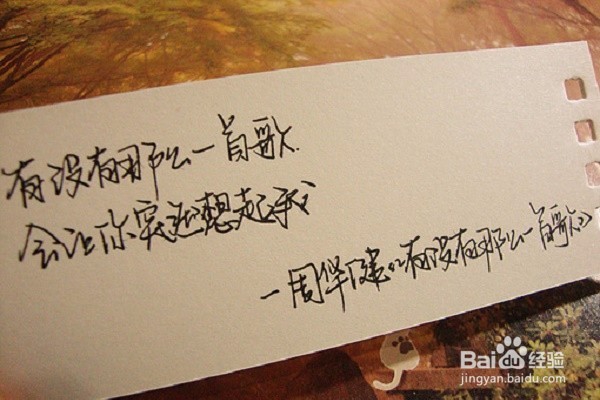 有没有那么一首歌.
会让你突然想起我
一周华健《有没有那么一首歌》
Baidu经验
jingyan.baidu.com